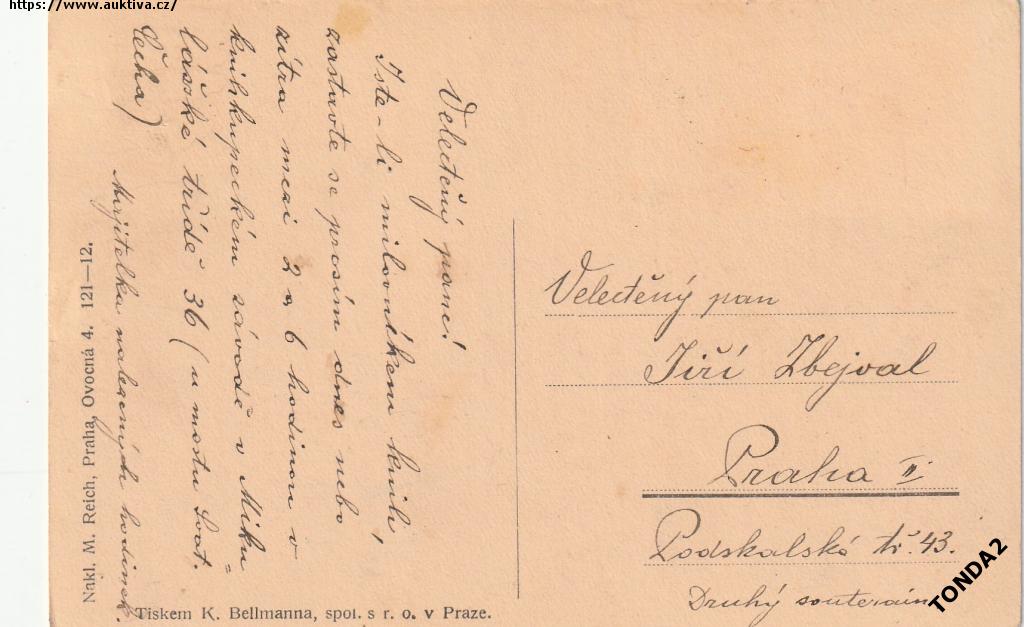 https://www.auktiva.cz/
Veletěný pane!
Jste-li milovníkem knih,
zastavte se prosím dnes nebo
zítra mezi 2 a 6 hodinou v
knihkupeckém závodě v Miku=
lášské třídě 36 (u mostu Svat.
Čecha)
Majitelka nalezených hodinek.
Nakl. M. Reich, Praha, Ovocná 4. 121—12.
Tiskem K. Bellmanna, spol. s r. o. v Praze.
Veletěný pan
Jiří Zbejval
Praha II.
Podskalská tř. 43.
Druhý souterain
TONDA2